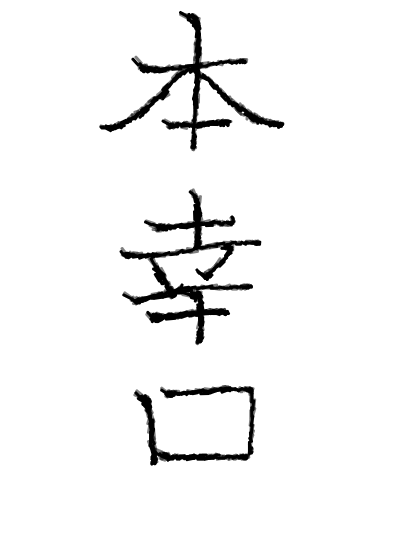 本
幸
口